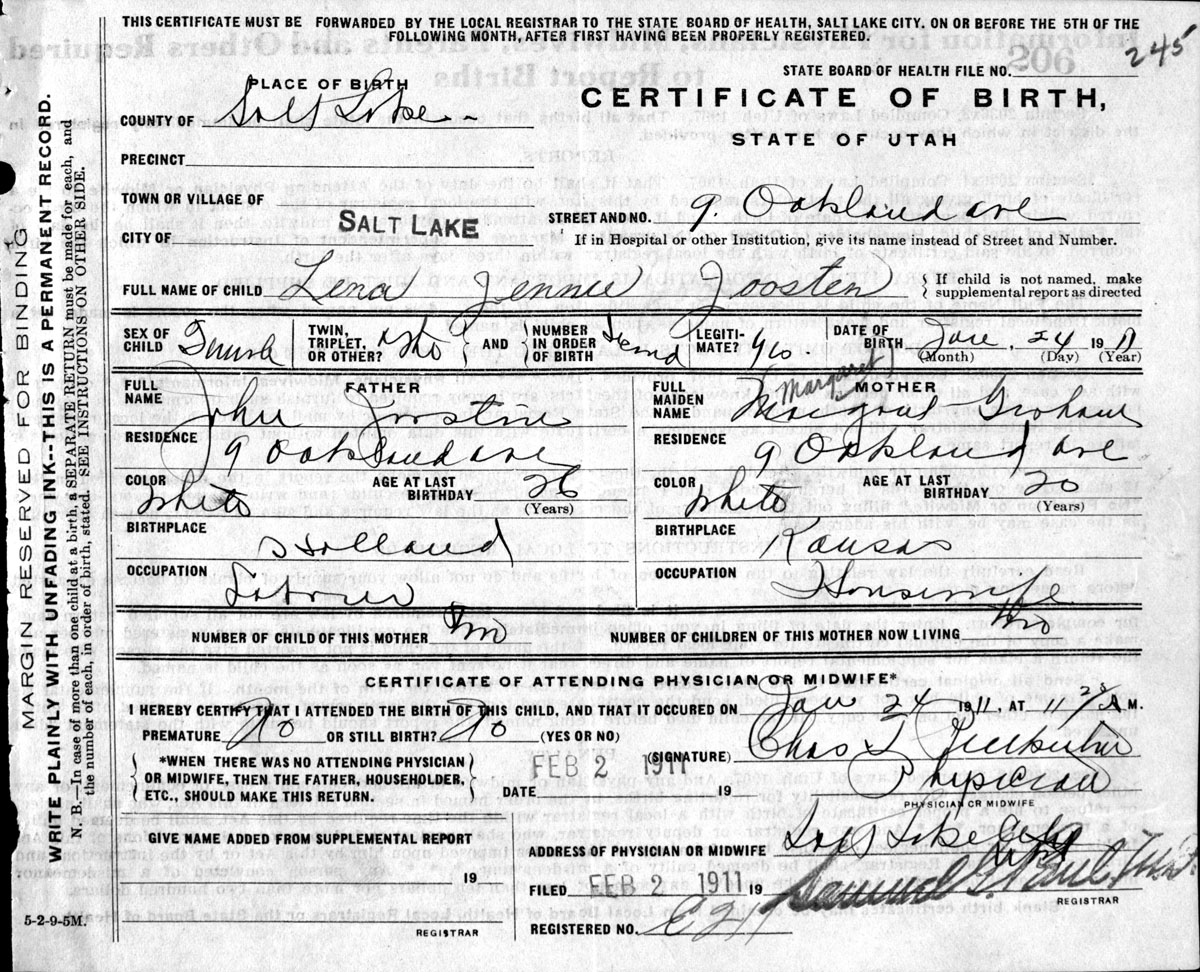 THIS CERTIFICATE MUST BE FORWARDED BY THE LOCAL REGISTRAR TO THE STATE BOARD OF HEALTH, SALT LAKE CITY, ON OR BEFORE THE 5TH OF THE
FOLLOWING MONTH, AFTER FIRST HAVING BEEN PROPERLY REGISTERED.
245
STATE BOARD OF HEALTH FILE NO.
PLACE OF BIRTH
CERTIFICATE OF BIRTH,
STATE OF UTAH
COUNTY OF Salt Lake
PRECINCT
TOWN OR VILLAGE OF
CITY OF SALT LAKE
STREET AND NO. 9. Oakland ave
If in Hospital or other Institution, give its name instead of Street and Number.
FULL NAME OF CHILD Lena Jennie Joosten
If child is not named, make
supplemental report as directed
SEX OF CHILD
TWIN, TRIPLET, OR OTHER? No
AND
NUMBER IN ORDER OF BIRTH
LEGITIMATE? Yes
DATE OF BIRTH Jan, 24 1911
(Month) (Day) (Year)
FATHER
FULL NAME John Joosten
RESIDENCE 9 Oakland ave
COLOR White
AGE AT LAST BIRTHDAY 26
(Years)
BIRTHPLACE Holland
OCCUPATION Laborer
MOTHER
Margaret
FULL MAIDEN NAME Margaret Graham
RESIDENCE 9 Oakland ave
COLOR White
AGE AT LAST BIRTHDAY 20
(Years)
BIRTHPLACE Kansas
OCCUPATION Housewife
NUMBER OF CHILD OF THIS MOTHER Two
NUMBER OF CHILDREN OF THIS MOTHER NOW LIVING Two
CERTIFICATE OF ATTENDING PHYSICIAN OR MIDWIFE*
I HEREBY CERTIFY THAT I ATTENDED THE BIRTH OF THIS CHILD, AND THAT IT OCCURED ON Jan 24 1911, AT 11 A M.
PREMATURE No OR STILL BIRTH? No (YES OR NO)
*WHEN THERE WAS NO ATTENDING PHYSICIAN
OR MIDWIFE, THEN THE FATHER, HOUSEHOLDER,
ETC., SHOULD MAKE THIS RETURN.
(SIGNATURE) Chas
Physician
PHYSICIAN OR MIDWIFE
DATE FEB 2 1911 19
GIVE NAME ADDED FROM SUPPLEMENTAL REPORT
19
REGISTRAR
ADDRESS OF PHYSICIAN OR MIDWIFE Salt Lake City
FILED FEB 2 1911 19 Samuel G. Paul
REGISTRAR
REGISTERED NO.
5-2-9-5M.
MARGIN RESERVED FOR BINDING
WRITE PLAINLY WITH UNFADING INK--THIS IS A PERMANENT RECORD.
N. B.—In case of more than one child at a birth, a SEPARATE RETURN must be made for each, and
the number of each, in order of birth, stated. SEE INSTRUCTIONS ON OTHER SIDE.